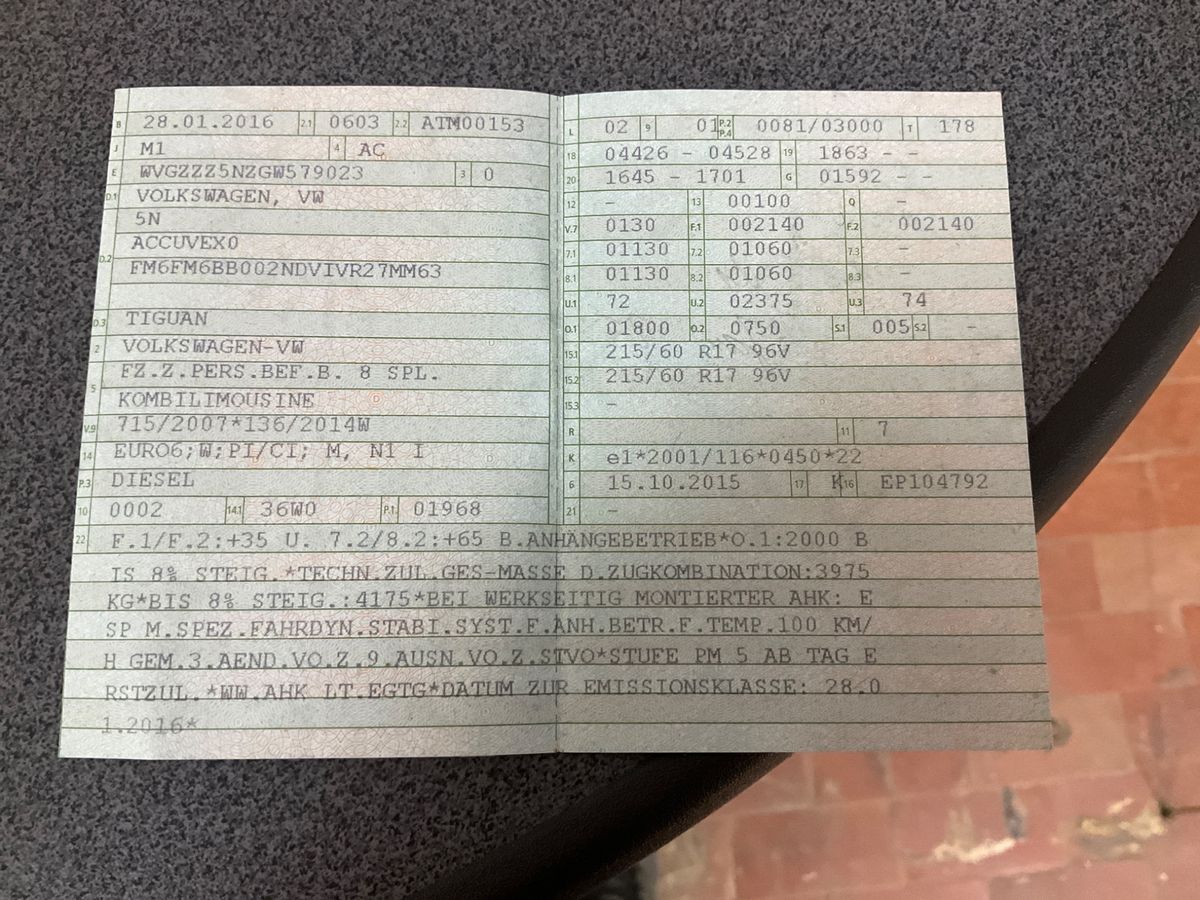 B 28.01.2016 2.1 0603 2.2 ATM00153
J M1 4 AC
E WVGZZZ5NZGW579023 3 0
D.1 VOLKSWAGEN, VW
5N
D.2 ACCUVEX0
FM6FM6BB002NDVIVR27MM63
D.3 TIGUAN
2 VOLKSWAGEN-VW
5 FZ.Z.PERS.BEF.B. 8 SPL.
KOMBILIMOUSINE
V.9 715/2007*136/2014W
14 EURO6;W;PI/CI; M, N1 I
P.3 DIESEL
10 0002 14.1 36W0 P.1 01968
L 02 9 01 P.2 P.4 0081/03000 T 178
18 04426 - 04528 19 1863 - -
20 1645 - 1701 G 01592 - -
12 - 13 00100 Q -
V.7 0130 F.1 002140 F.2 002140
7.1 01130 7.2 01060 7.3 -
8.1 01130 8.2 01060 8.3 -
U.1 72 U.2 02375 U.3 74
O.1 01800 O.2 0750 S.1 005 S.2 -
15.1 215/60 R17 96V
15.2 215/60 R17 96V
15.3 -
R 11 7
K e1*2001/116*0450*22
6 15.10.2015 17 K 16 EP104792
21 -
22 F.1/F.2:+35 U. 7.2/8.2:+65 B.ANHÄNGEBETRIEB*O.1:2000 B
IS 8% STEIG.*TECHN.ZUL.GES-MASSE D.ZUGKOMBINATION:3975
KG*BIS 8% STEIG.:4175*BEI WERKSEITIG MONTIERTER AHK: E
SP M.SPEZ.FAHRDYN.STABI.SYST.F.ANH.BETR.F.TEMP.100 KM/
H GEM.3.AEND.VO.Z.9.AUSN.VO.Z.STVO*STUFE PM 5 AB TAG E
RSTZUL.*WW.AHK LT.EGTG*DATUM ZUR EMISSIONSKLASSE: 28.0
1.2016*